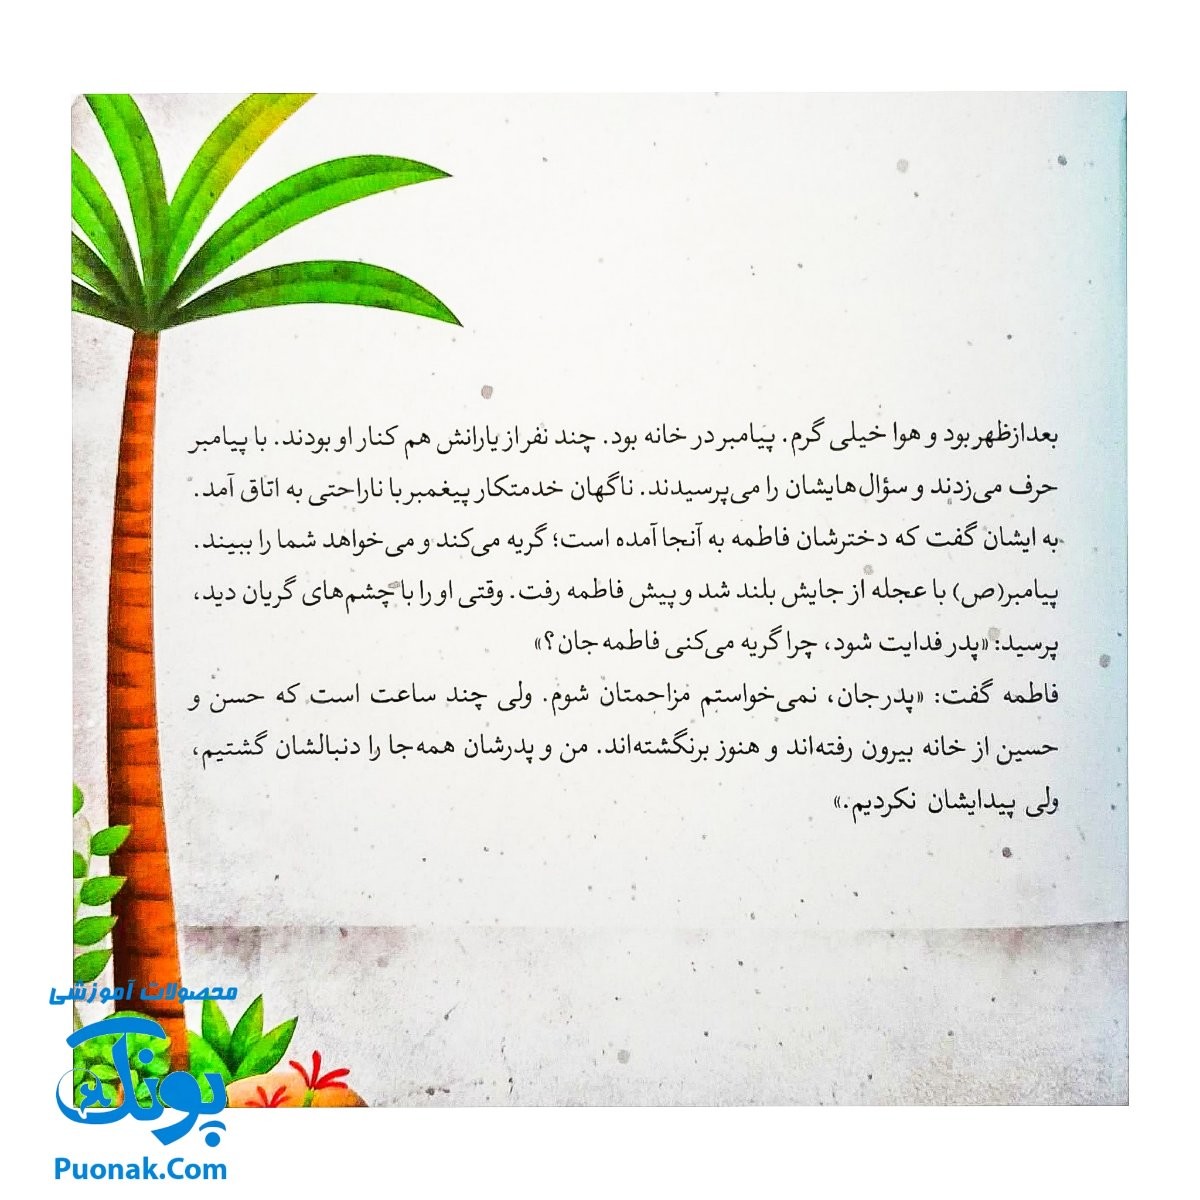 بعدازظهر بود و هوا خیلی گرم. پیامبر در خانه بود. چند نفر از یارانش هم کنار او بودند. با پیامبر
حرف می‌زدند و سؤال‌هایشان را می‌پرسیدند. ناگهان خدمتکار پیغمبر با ناراحتی به اتاق آمد.
به ایشان گفت که دخترشان فاطمه به آنجا آمده است؛ گریه می‌کند و می‌خواهد شما را ببیند.
پیامبر(ص) با عجله از جایش بلند شد و پیش فاطمه رفت. وقتی او را با چشم‌های گریان دید،
پرسید: «پدر فدایت شود، چرا گریه می‌کنی فاطمه جان؟»
فاطمه گفت: «پدرجان، نمی‌خواستم مزاحمتان شوم. ولی چند ساعت است که حسن و
حسین از خانه بیرون رفته‌اند و هنوز برنگشته‌اند. من و پدرشان همه‌جا را دنبالشان گشتیم،
ولی پیدایشان نکردیم.»
محصولات آموزشی
پونک
Puonak.Com